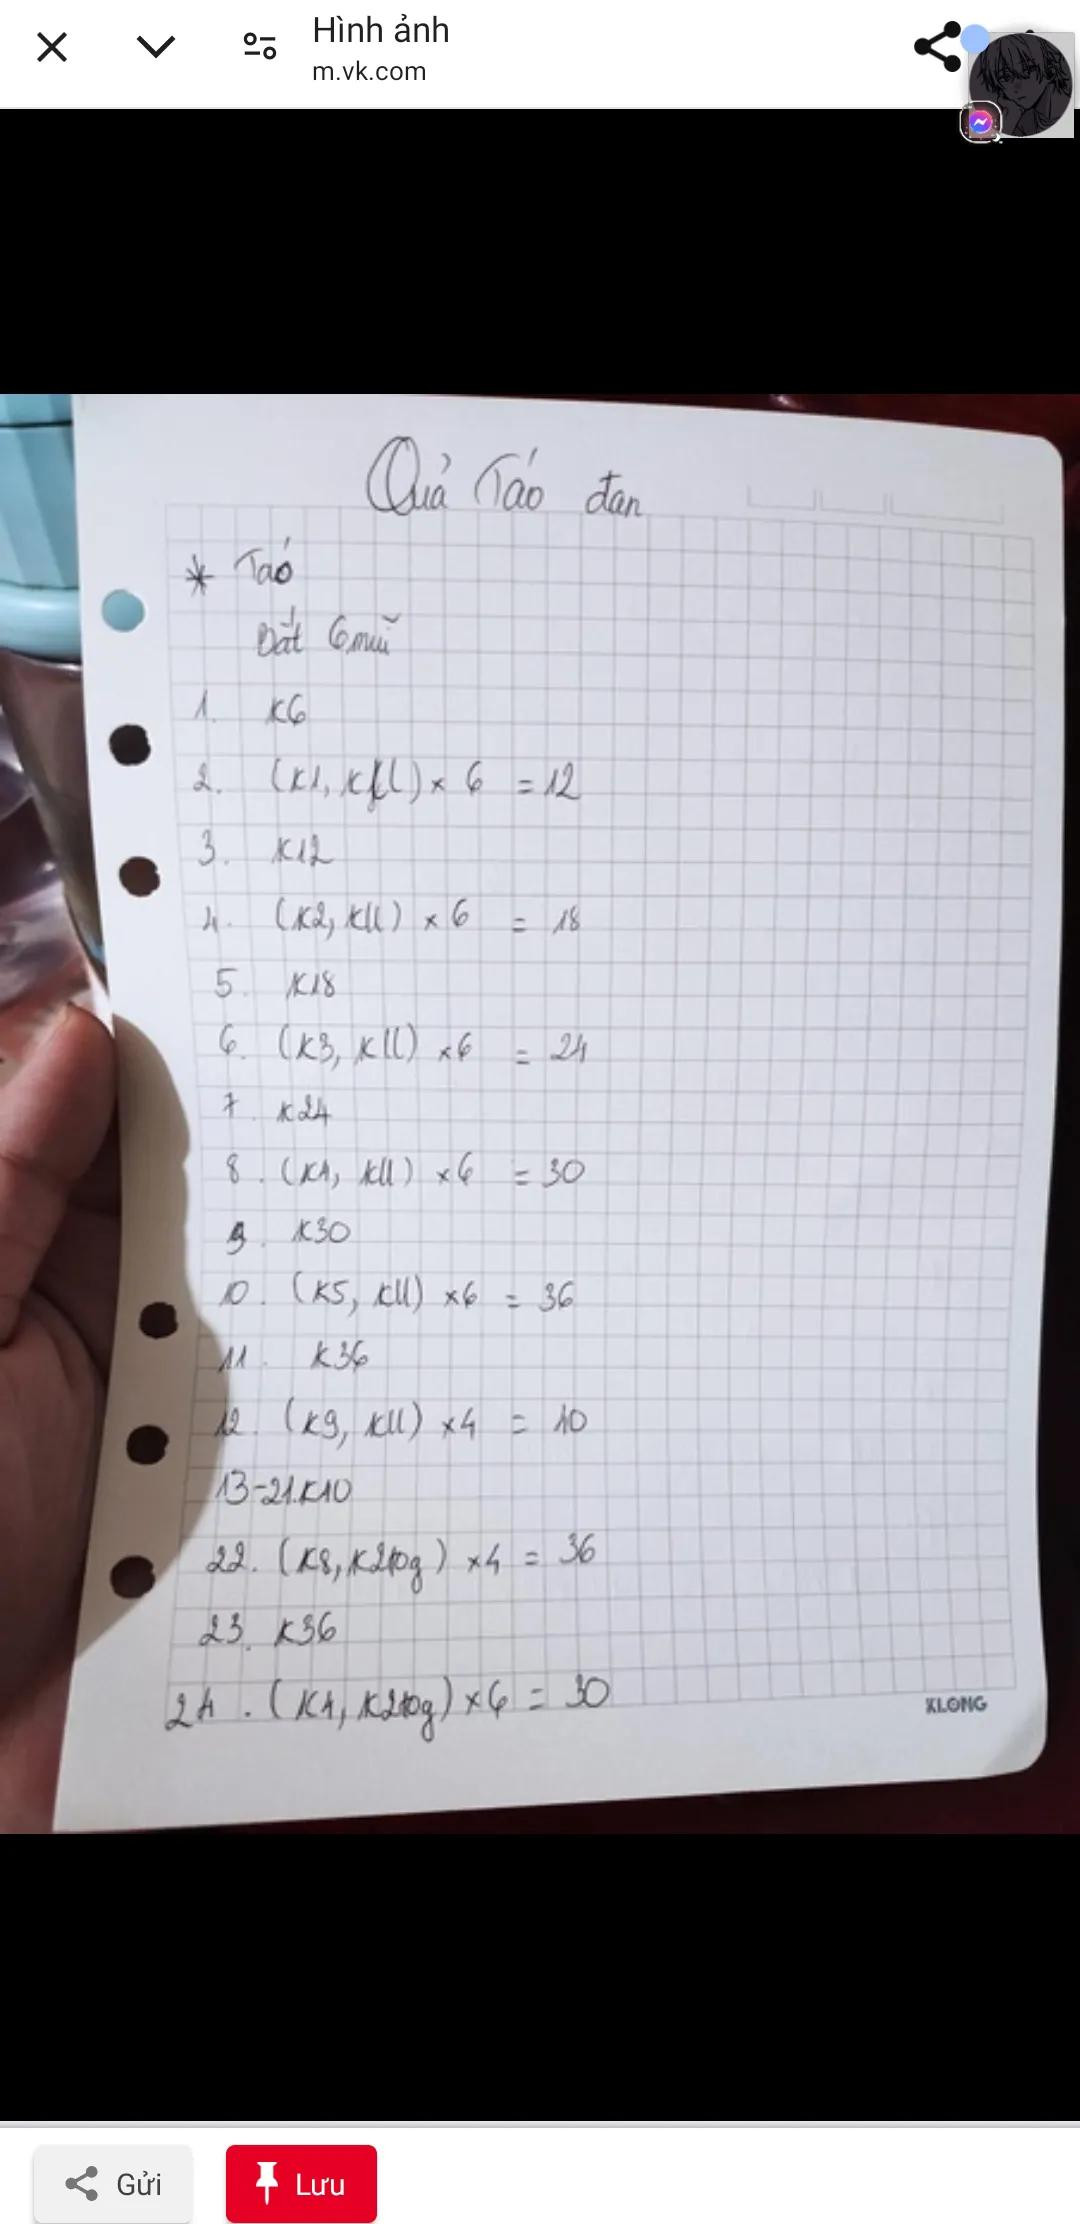 Hình ảnh
m.vk.com
Quả Táo đan
* Táo
Bắt 6 mũi
1. K6
2. (K1, Kll) × 6 = 12
3. K12
4. (K2, Kll) × 6 = 18
5. K18
6. (K3, Kll) ×6 = 24
7. K24
8. (K4, Kll) ×6 = 30
9. K30
10. (K5, Kll) ×6 = 36
11. K36
12. (K9, Kll) ×4 = 40
13-21.K40
22. (K8, K2tog) ×4 = 36
23. K36
24. (K4, K2tog) ×6 = 30
KLONG
Gửi
Lưu